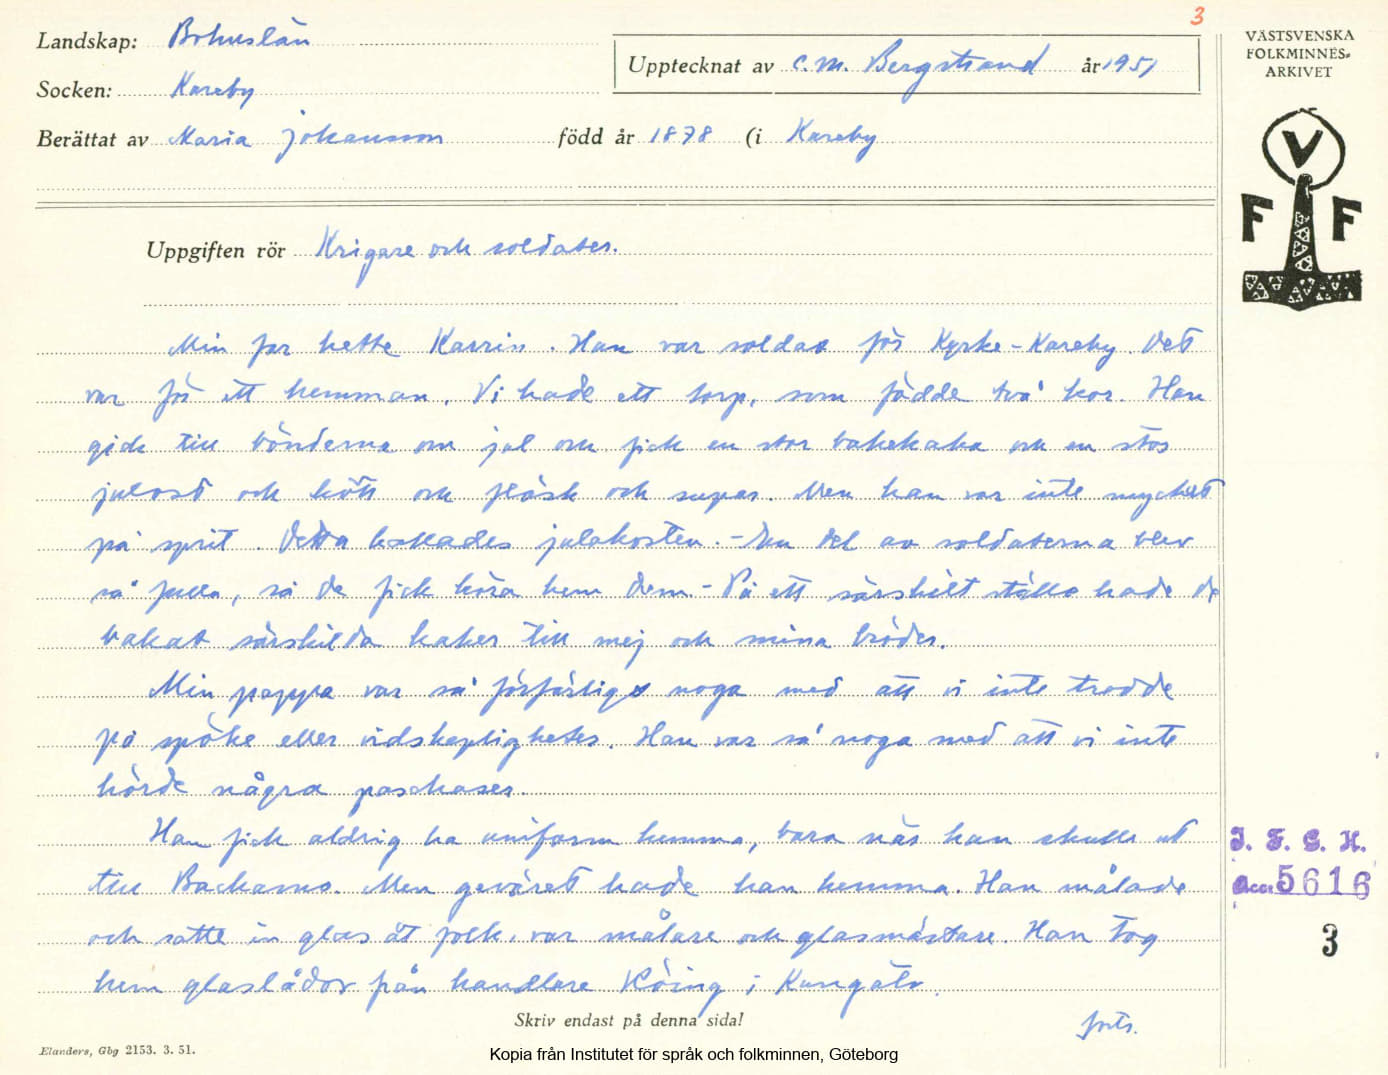 3
Landskap: Bohuslän
Upptecknat av C.M. Bergstrand år 1951
Socken: Kareby
Berättat av Maria Johansson född år 1878 (i Kareby
VÄSTSVENSKA
FOLKMINNES-
ARKIVET
V
F F
Uppgiften rör Krigare och soldater.
Min far hette Karrin. Han var soldat för Kyrke-Kareby. Det
var för ett hemman. Vi hade ett torp, som födde två kor. Han
gick till bönderna om jul och fick en stor bakekaka och en stor
julost och kött och fläsk och supar. Men han var inte mycket
på sprit. Detta kallades julakosten. - En del av soldaterna blev
så fulla, så de fick köra hem dem. - På ett särskilt ställe hade de
bakat särskilda kaker till mej och mina bröder.
Min pappa var så förfärligt noga med att vi inte trodde
på spöke eller vidskepligheter. Han var så noga med att vi inte
hörde några paschaser.
Han fick aldrig ha uniform hemma, bara när han skulle ut
till Backamo. Men geväret hade han hemma. Han målade
och satte in glas åt folk, var målare och glasmästare. Han tog
hem glaslådor från handlare Köing i Kungälv.
forts.
I. F. G. H.
Acc. 5616
3
Skriv endast på denna sida!
Elanders, Gbg 2153. 3. 51.
Kopia från Institutet för språk och folkminnen, Göteborg